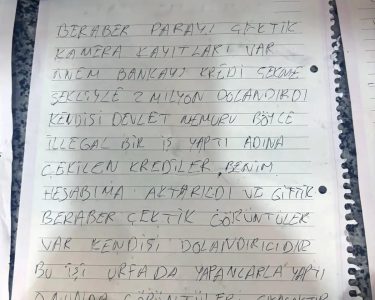 BERABER PARAYI ÇEKTİK
KAMERA KAYITLARI VAR
ANEM BANKAYI KREDİ ÇEKME
ŞEKLİYLE 2 MİLYON DOLANDIRDI
KENDİSİ DEVLET MEMURU BÖYLE
İLLEGAL BİR İŞ YAPTI ADINA
ÇEKİLEN KREDİLER, BENİM
HESABIMA AKTARILDI VE GİTTİK
BERABER ÇEKTİK GÖRÜNTÜLER
VAR KENDİSİ DOLANDIRICIDIR
BU İŞİ URFADA YAPANLARLA YAPTI
GÖRÜNTÜLERİ